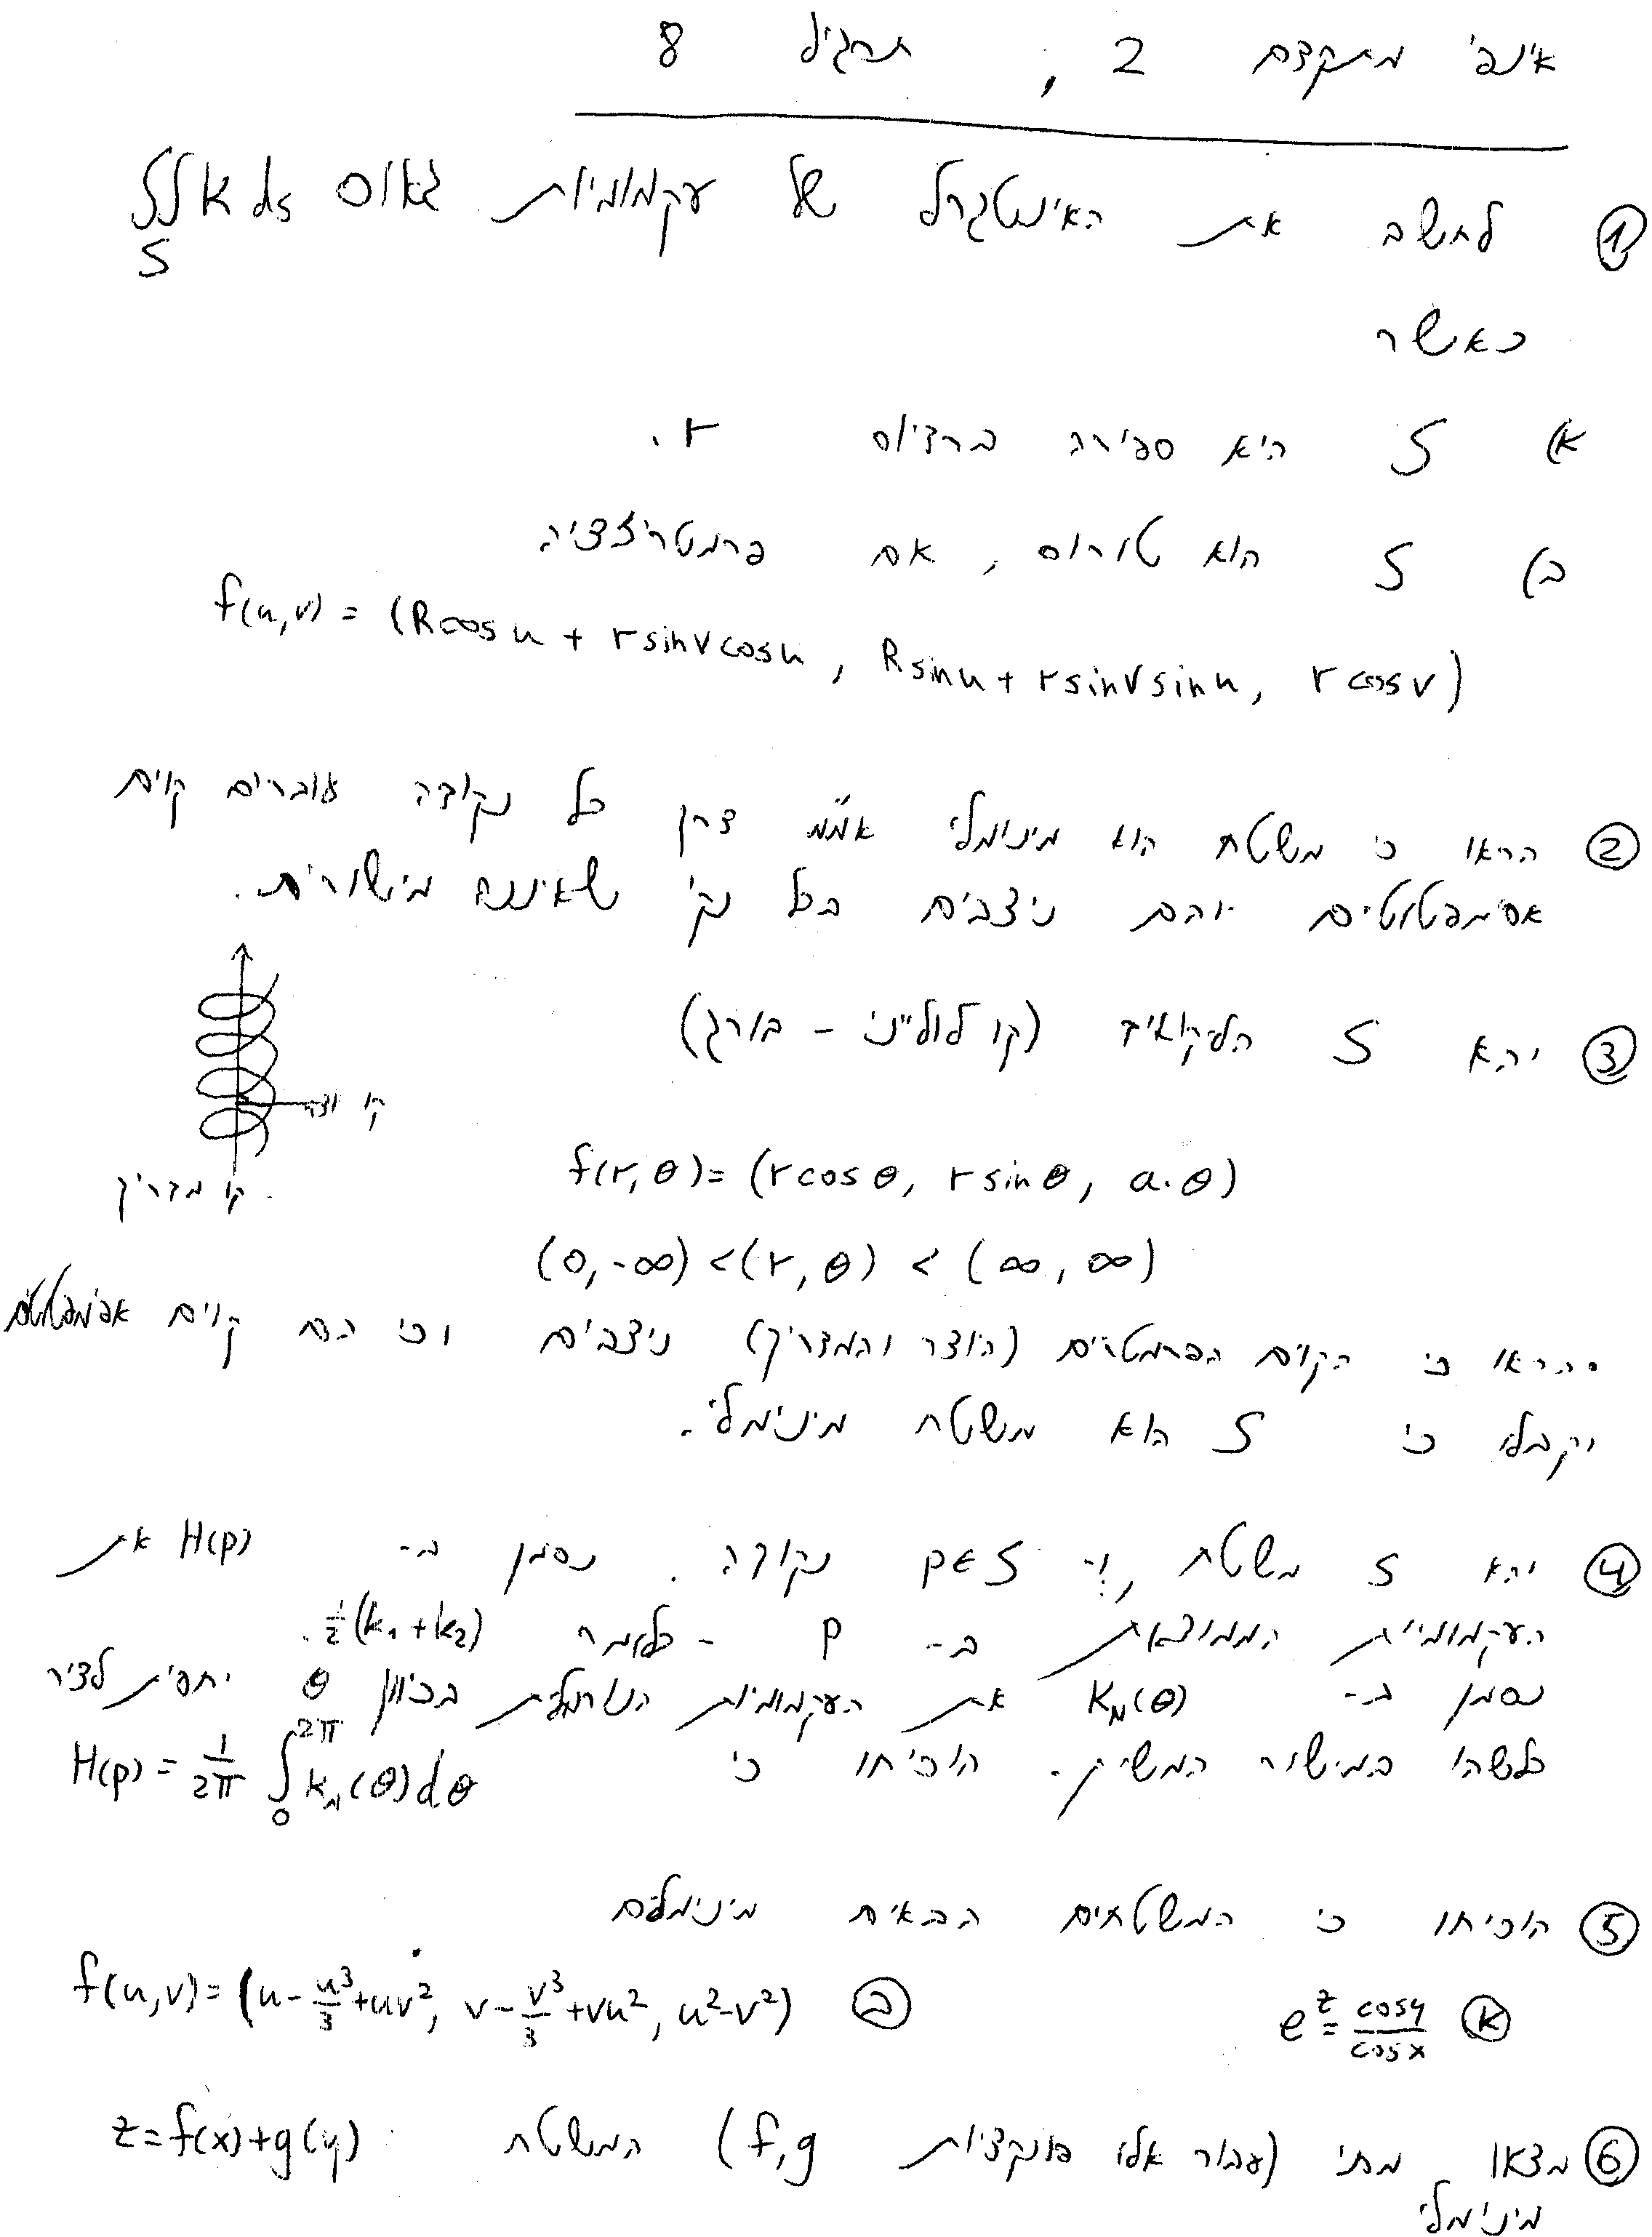 אינפי מתקדם 2, תרגיל 8
① לחשב את האינטגרל של עקמומיות גאוס ∬_S K ds
כאשר
א) S היא ספירה ברדיוס r.
ב) S הוא טורוס, אם פרמטריזציה
f(u,v) = (Rcosu + rsinvcosu, Rsinu + rsinvsinu, rcosv)
② הראו כי משטח הוא מינימלי אמ"מ דרך כל נקודה עוברים קוים
אסימפטוטיים והם ניצבים בכל נק' שאיננה מישורית.
③ יהא S הליקואיד (קו לולייני - בורג)
קו יוצר
קו מדריך
f(r,θ) = (rcosθ, rsinθ, a·θ)
(0,-∞) < (r,θ) < (∞,∞)
הראו כי הקוים הפרמטרים (היוצר והמדריך) ניצבים וכי הם קוים אסימפטוטים
וקבלו כי S הוא משטח מינימלי.
④ יהא S משטח, ו- p∈S נקודה. נסמן ב- H(p) את
העקמומיות הממוצעת ב- p - כלומר ½(k₁+k₂).
נסמן ב- K_N(θ) את העקמומיות הנורמלית בכיוון θ יחסית לציר
כלשהו במישור המשיק. הוכיחו כי H(p) = 1/2π ∫₀^2π k_N(θ)dθ
⑤ הוכיחו כי המשטחים הבאים מינימלים
א e^z = cosy/cosx ב f(u,v) = (u - u³/3 + uv², v - v³/3 + vu², u² - v²)
⑥ מצאו מתי (עבור אלו פונקציות f,g) המשטח z = f(x) + g(y)
מינימלי